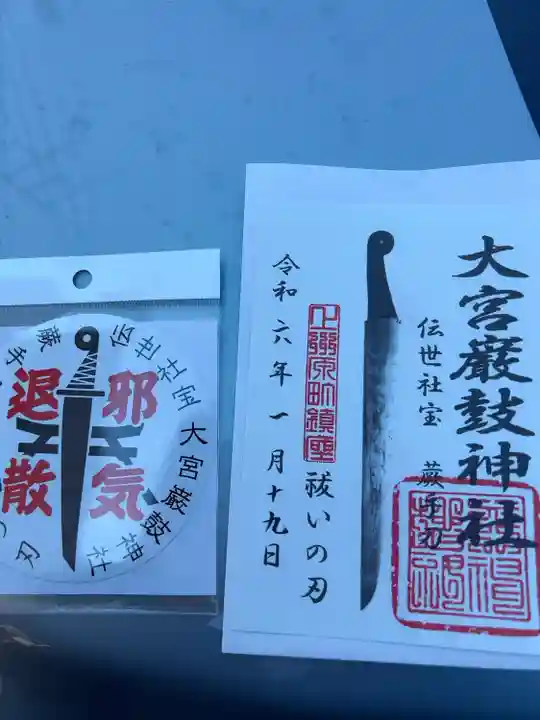 大宮巌鼓神社
伝世社宝 蕨手刀
祓いの刃
令和六年一月十九日
邪気
退散
大宮巌鼓神社
伝世社宝
蕨手
刃